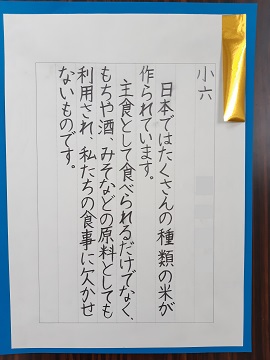 小六
日本ではたくさんの種類の米が
作られています。
主食として食べられるだけでなく、
もちや酒、みそなどの原料としても
利用され、私たちの食事に欠かせ
ないものです。